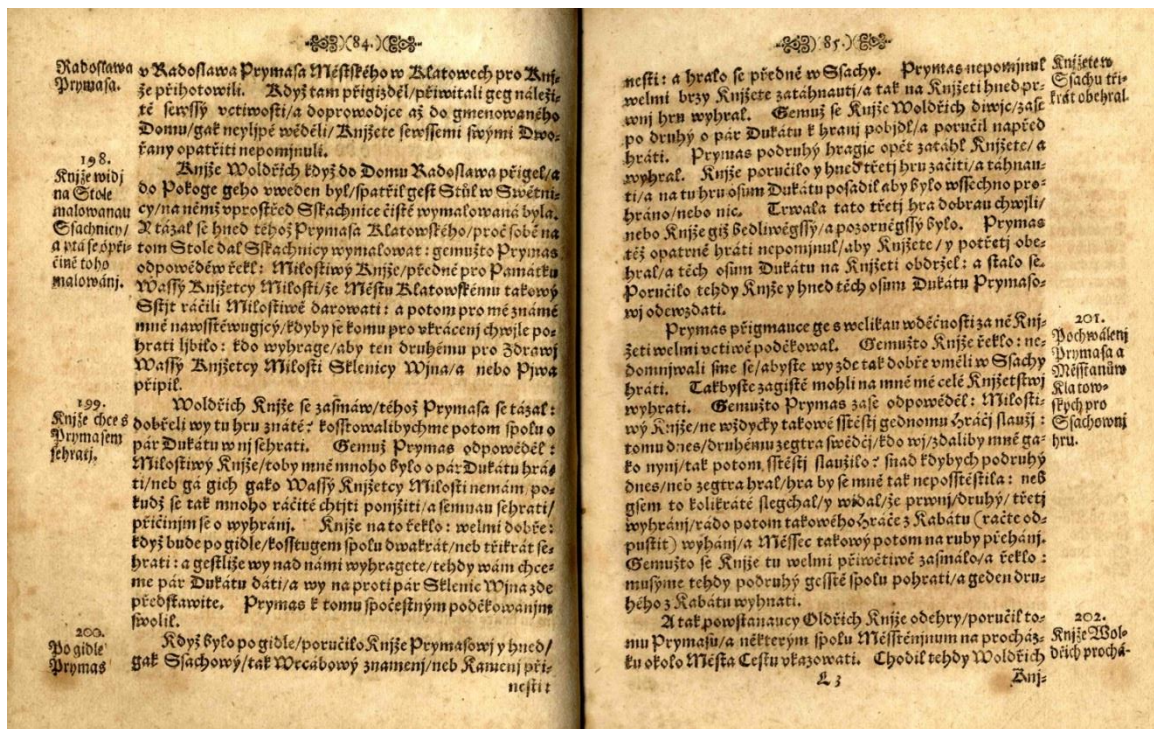 84.
Radoslawa
Prymasa.
v Radoslawa Prymasa Městského w Klatowech pro Knj-
že přihotowili. Když tam přigižděl/přiwitali geg náleži-
tě sewssy vctiwosti/a doprowodjce až do gmenowaného
Domu/gak neyljpé wěděli/Knjžete sewssemi swými Dwo-
řany opatřiti nepominuli.
198.
Knjže widj
na Stole
malowanau
Ssachnicy/
a ptá se o při-
čině toho
malowánj.
Knjže Woldřich když do Domu Radoslawa přigel/a
do Pokoge geho vweden byl/spatřil gest Stůl w Swětni-
cy/na němž vprostřed Sskachnice čistě wymalowaná byla.
N tázal se hned téhož Prymasa Klatowského/proč sobě na
tom Stole dal Sskachnicy wymalowat: gemužto Prymas
odpowěděw řekl: Milostiwý Knjže/předně pro Památku
Wassý Knjžetcy Milosti/že Městu Klatowskému takowý
Sstjt ráčili Milostiwě darowati: a potom pro mé známé
mně nawsstěwugjcý/kdyby se komu pro vkrácenj chwjle po-
hrati ljbilo: kdo wyhrage/aby ten druhému pro Zdrawj
Wassý Knjžetcy Milosti Sklenicy Wjna/a nebo Pjwa
připil.
199.
Knjže chce s
Prymasem
sehratj.
Woldřich Knjže se zasmáw/téhož Prymasa se tázal:
dobřeli wy tu hru znáte? kosstowalibychme potom spolu o
pár Dukátu w nj sehrati. Gemuž Prymas odpowěděl:
Milostiwý Knjže/toby mně mnoho bylo o pár Dukátu hrá-
ti/neb gá gich gako Wassý Knjžetcy Milosti nemám/po-
kudž se tak mnoho ráčité chtjti ponjžiti/a semnau sehrati/
přičinjm se o wyhránj. Knjže na to řeklo: welmi dobře:
když bude po gidle/kosstugem spolu dwakrát/neb třikrát se-
hrati: a gestliže wy nad námi wyhragete/tehdy wám chce-
me pár Dukátu dáti/a wy na proti pár Sklenic Wjna zde
předstawite. Prymas k tomu spočestným poděkowanjm
swolil.
200.
Po gidle
Prymas
Když bylo po gidle/poručilo Knjže Prymasowj y hned/
gak Ssachowý/tak Wrcábowý znamenj/neb Kamenj při-
nesti:
85.
nesti: a hralo se předně w Ssachy. Prymas nepominul
welmi brzy Knjžete zatáhnautj/a tak na Knjžeti hned pr-
wnj hru wyhral. Gemuž se Knjže Woldřich diwjc/zase
po druhý o pár Dukátu k hranj pobjdl/a poručil napřed
hráti. Prymas podruhý hragic opět zatáhl Knjžete/a
wyhral. Knjže poručilo y hned třetj hru začiti/a táhnau-
ti/a na tu hru osum Dukátu posadil aby bylo wssechno pro-
hráno/nebo nic. Trwala tato třetj hra dobrau chwjli/
nebo Knjže giž bedliwěgssý/a pozorněgssý bylo. Prymas
též opatrně hráti nepominul/aby Knjžete/y potřetj obe-
hral/a těch osum Dukátu na Knjžeti obdržel: a stalo se.
Poručilo tehdy Knjže y hned těch osum Dukátu Prymaso-
wj odewzdati.
Knjžete w
Ssachu tři-
krát obehral.
Prymas přigmauce ge s welikau wděčnosti za ně Knj-
žeti welmi vctiwě poděkowal. Gemužto Knjže řeklo: ne-
domnjwali sme se/abyste wy zde tak dobře vměli w Ssachy
hrati. Takbyste zagistě mohli na mně mé celé Knjžetstwj
wyhrati. Gemužto Prymas zase odpowěděl: Milosti-
wý Knjže/ne wždycky takowé sstěstj gednomu Hráči slaužj:
tomu dnes/druhému zegtra swědčj/kdo wj/zdaliby mně ga-
ko nynj/tak potom/sstěstj slaužilo? snad kdybych podruhý
dnes/neb zegtra hral/hra by se mně tak neposstěstila: neb
gsem to kolikráté slegchal/y widal/že prwnj/druhý/třetj
wyhránj/rádo potom takowého Hráče z Kabátu (račte od-
pustit) wyhánj/a Měssec takowý potom na ruby přehánj.
Gemužto se Knjže tu welmi přiwětiwě zasmálo/a řeklo:
musýme tehdy podruhý gesstě spolu pohrati/a geden dru-
hého z Kabátu wyhnati.
201.
Pochwálenj
Prymasa a
Měsstanůw
Klatow-
ských pro
Ssachownj
hru.
A tak powstanaucy Oldřich Knjže odehry/poručil to-
mu Prymasu/a některým spolu Měsstěnjnum na procház-
ku okolo Města Cestu vkazowati. Chodil tehdy Woldřich
202.
Knjže Wol-
dřich prochá-
L 3
Knj-